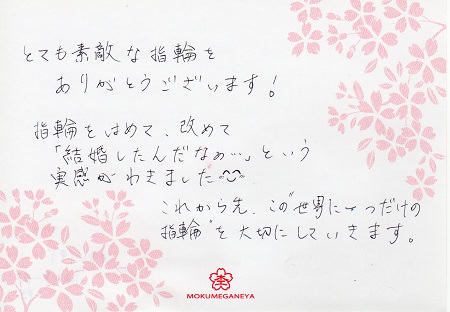 とても素敵な指輪を
ありがとうございます!
指輪をはめて、改めて
「結婚したんだなぁ…」という
実感がわきました^^
これから先、この"世界に一つだけの
指輪"を大切にしていきます。
MOKUMEGANEYA